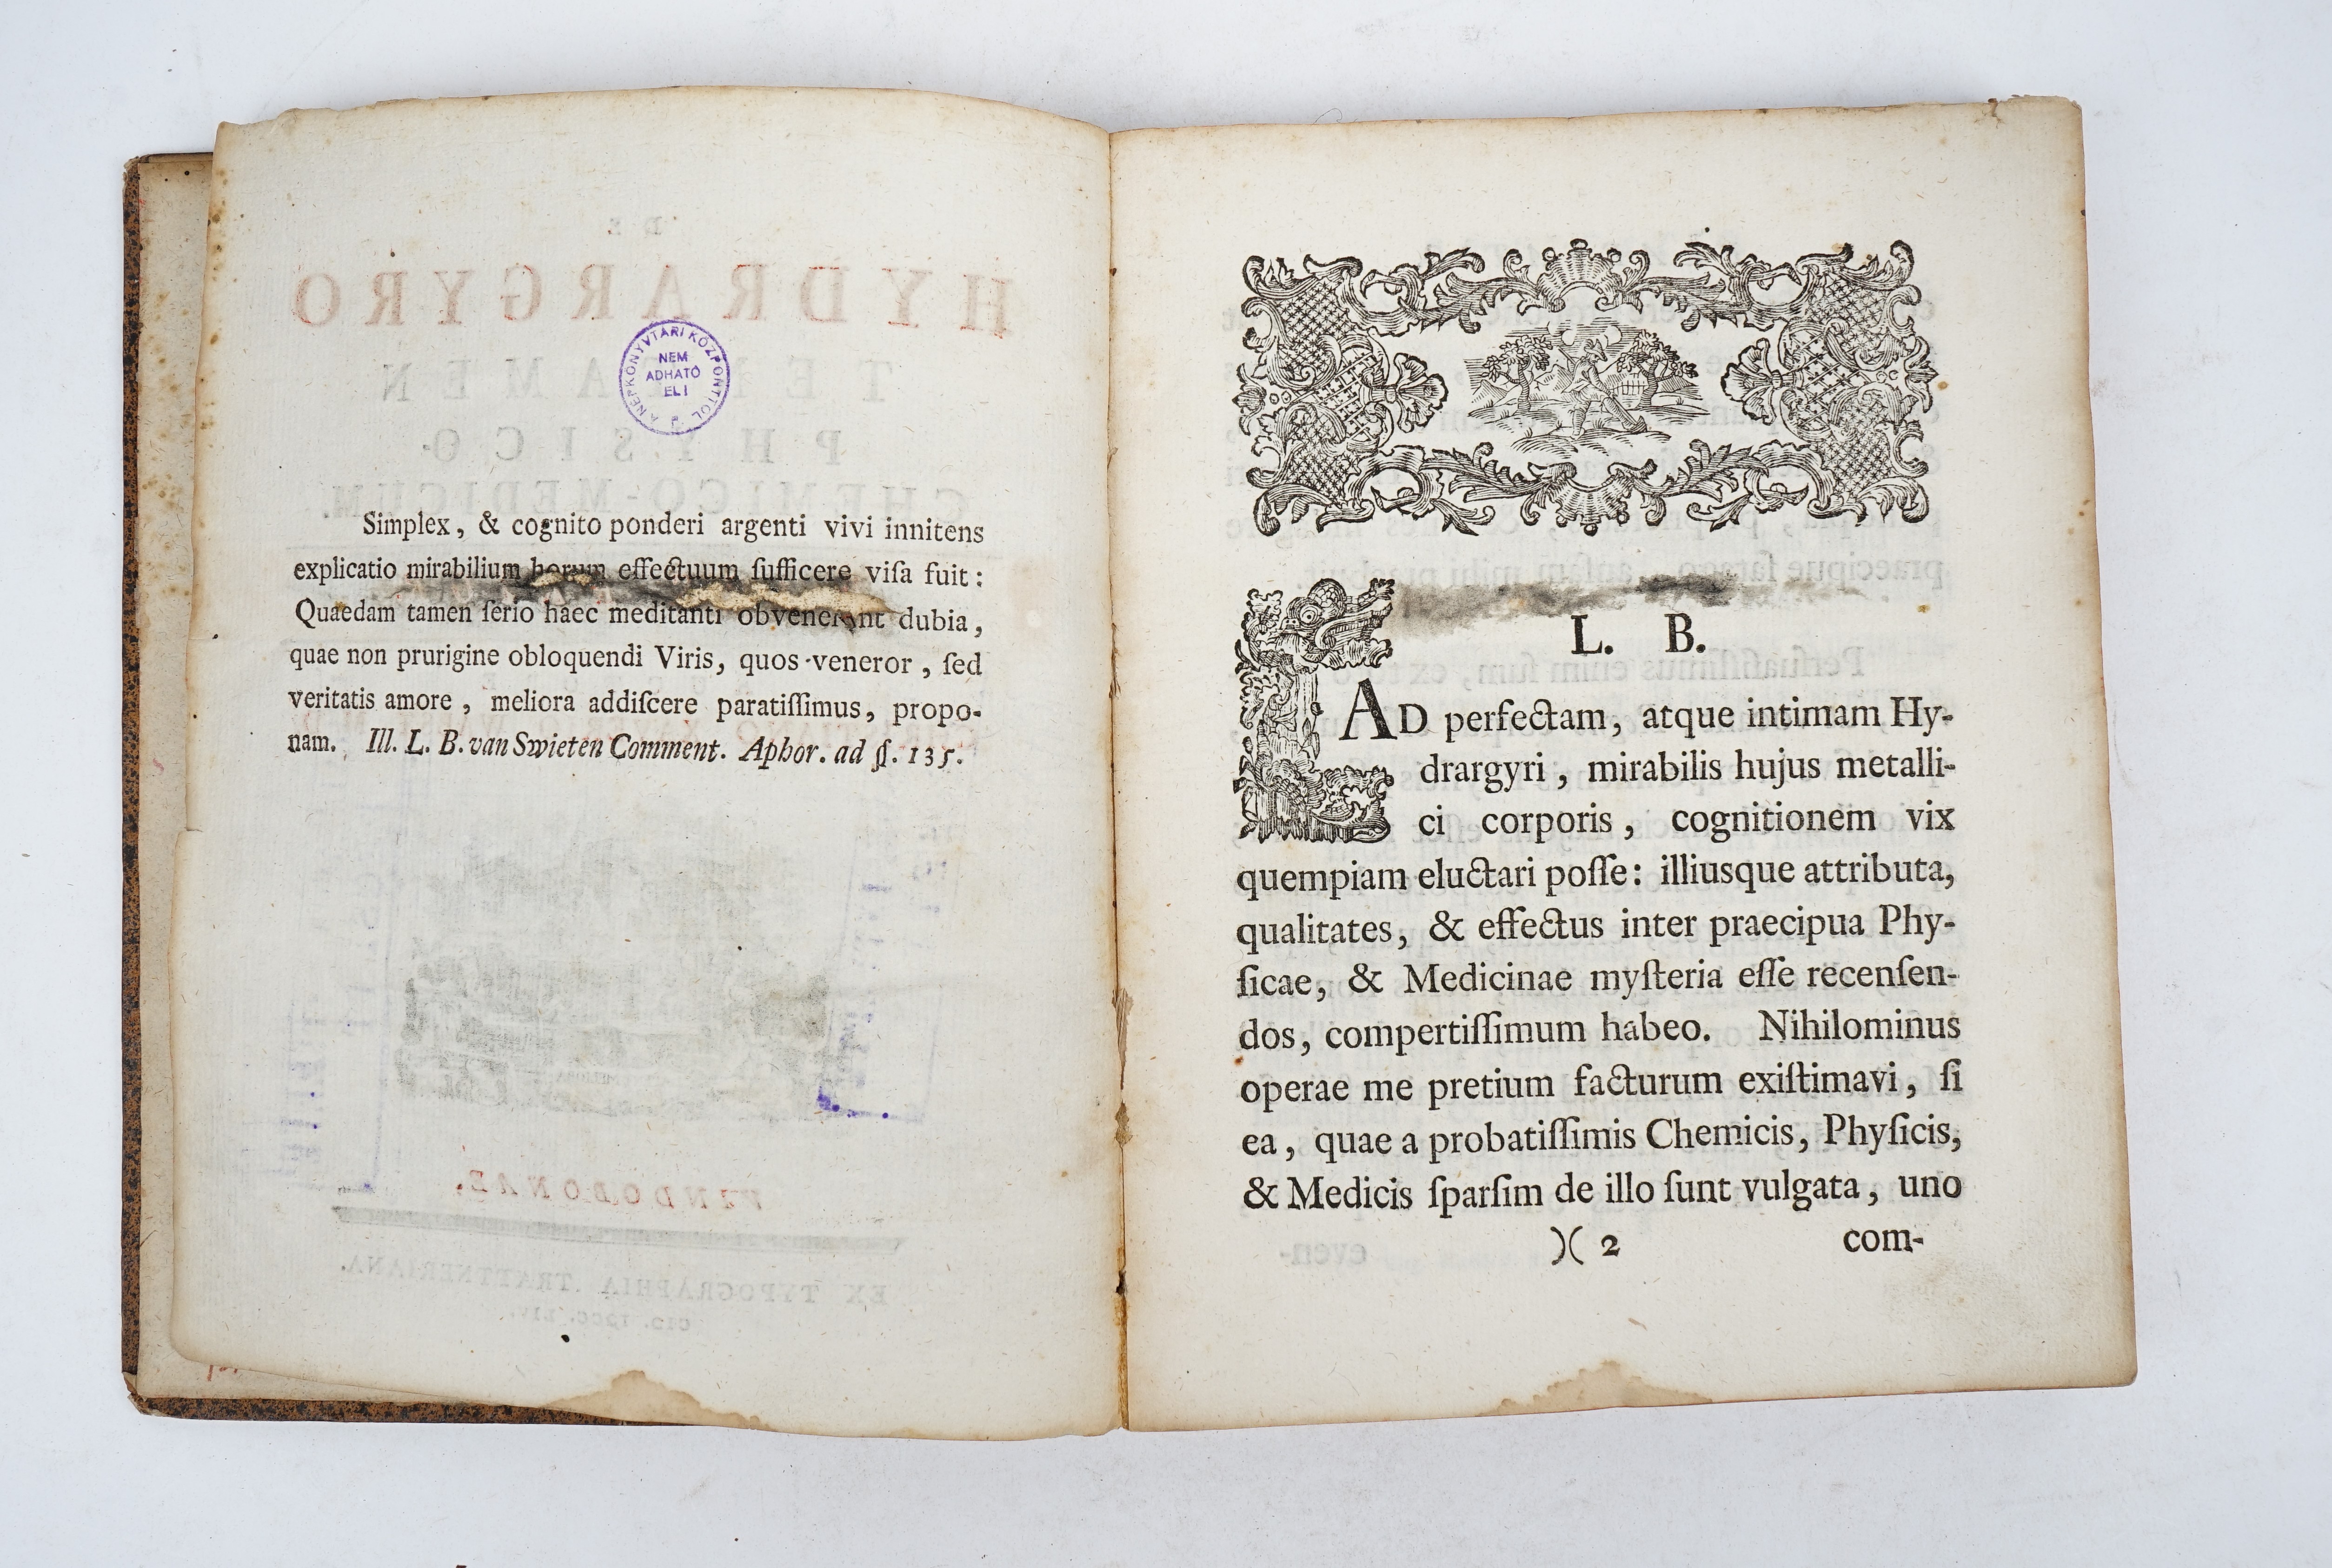 DE
HYDRARGYRO
TENTAMEN
PHYSICO-
CHEMICO-MEDICUM.
A NÉPKÖNYVTÁRI KÖZPONTTÓL
NEM
ADHATÓ
EL!
Simplex, & cognito ponderi argenti vivi innitens
explicatio mirabilium horum effectuum ſufficere viſa fuit:
Quaedam tamen ſerio haec meditanti obvenerunt dubia,
quae non prurigine obloquendi Viris, quos veneror, ſed
veritatis amore, meliora addiſcere paratiſſimus, propo-
nam. Ill. L. B. van Swieten Comment. Aphor. ad §. 135.
VINDOBONAE,
EX TYPOGRAPHIA TRATTNERIANA.
L. B.
AD perfectam, atque intimam Hy-
drargyri, mirabilis hujus metalli-
ci corporis, cognitionem vix
quempiam eluctari poſſe: illiusque attributa,
qualitates, & effectus inter praecipua Phy-
ſicae, & Medicinae myſteria eſſe recenſen-
dos, compertiſſimum habeo. Nihilominus
operae me pretium facturum exiſtimavi, ſi
ea, quae a probatiſſimis Chemicis, Phyſicis,
& Medicis ſparſim de illo ſunt vulgata, uno
)( 2 com-